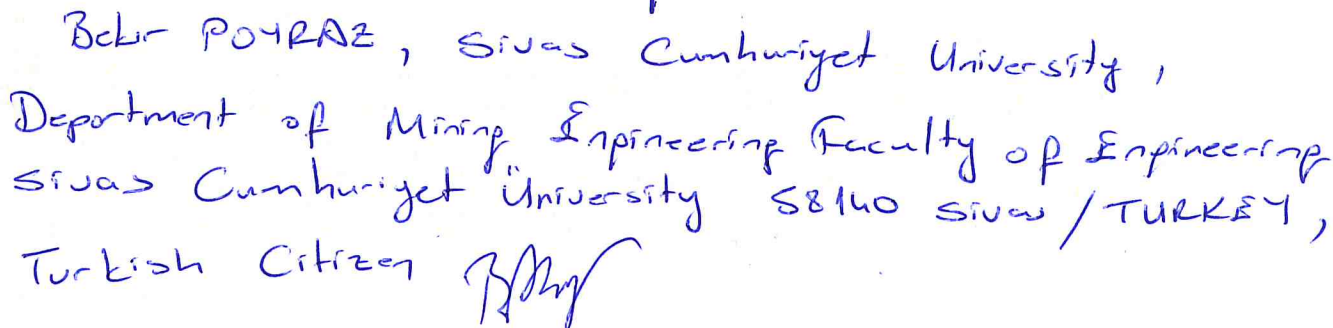 Bekir POYRAZ, Sivas Cumhuriyet University,
Department of Mining Engineering Faculty of Engineering
Sivas Cumhuriyet Üniversity 58140 Sivas / TURKEY,
Turkish Citizen